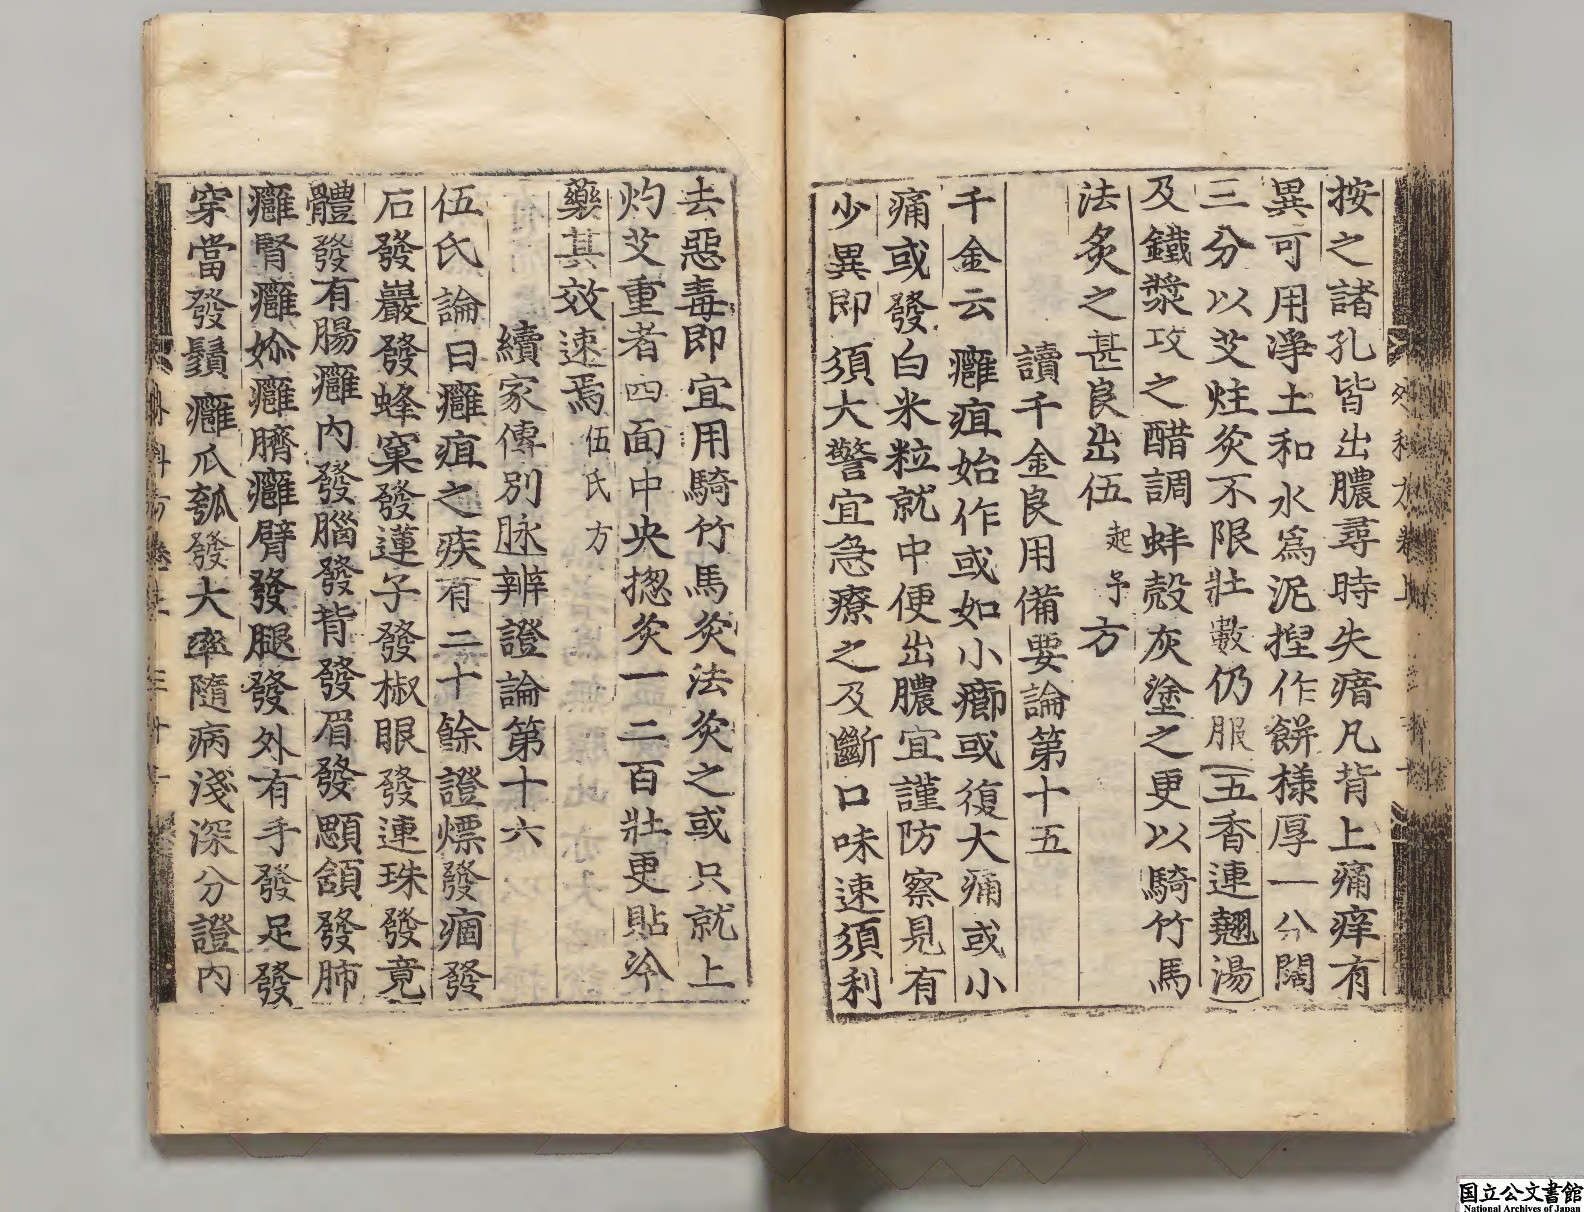 按之諸孔皆出膿尋時失瘖凡背上痛痒有
異可用淨土和水爲泥揑作餅様厚一分闊
三分以艾炷灸不限壯數仍服五香連翹湯
及鐵漿攻之醋調蚌殼灰塗之更以騎竹馬
法灸之甚良出伍起予方
讀千金良用備要論第十五
千金云癰疽始作或如小癤或復大痛或小
痛或發白米粒就中便出膿宜謹防察見有
少異即須大警宜急療之及斷口味速須利
去惡毒即宜用騎竹馬灸法灸之或只就上
灼艾重者四面中央揔灸一二百壯更貼冷
藥其效速焉伍氏方
續家傳別脉辨證論第十六
伍氏論曰癰疽之疾有二十餘證熛發痼發
石發巖發蜂窠發蓮子發椒眼發連珠發竟
體發有腸癰內發腦發背發眉發顋頷發肺
癰腎癰妳癰臍癰臂發腿發外有手發足發
穿當發鬚癰瓜瓠發大率隨病淺深分證內
国立公文書館
National Archives of Japan